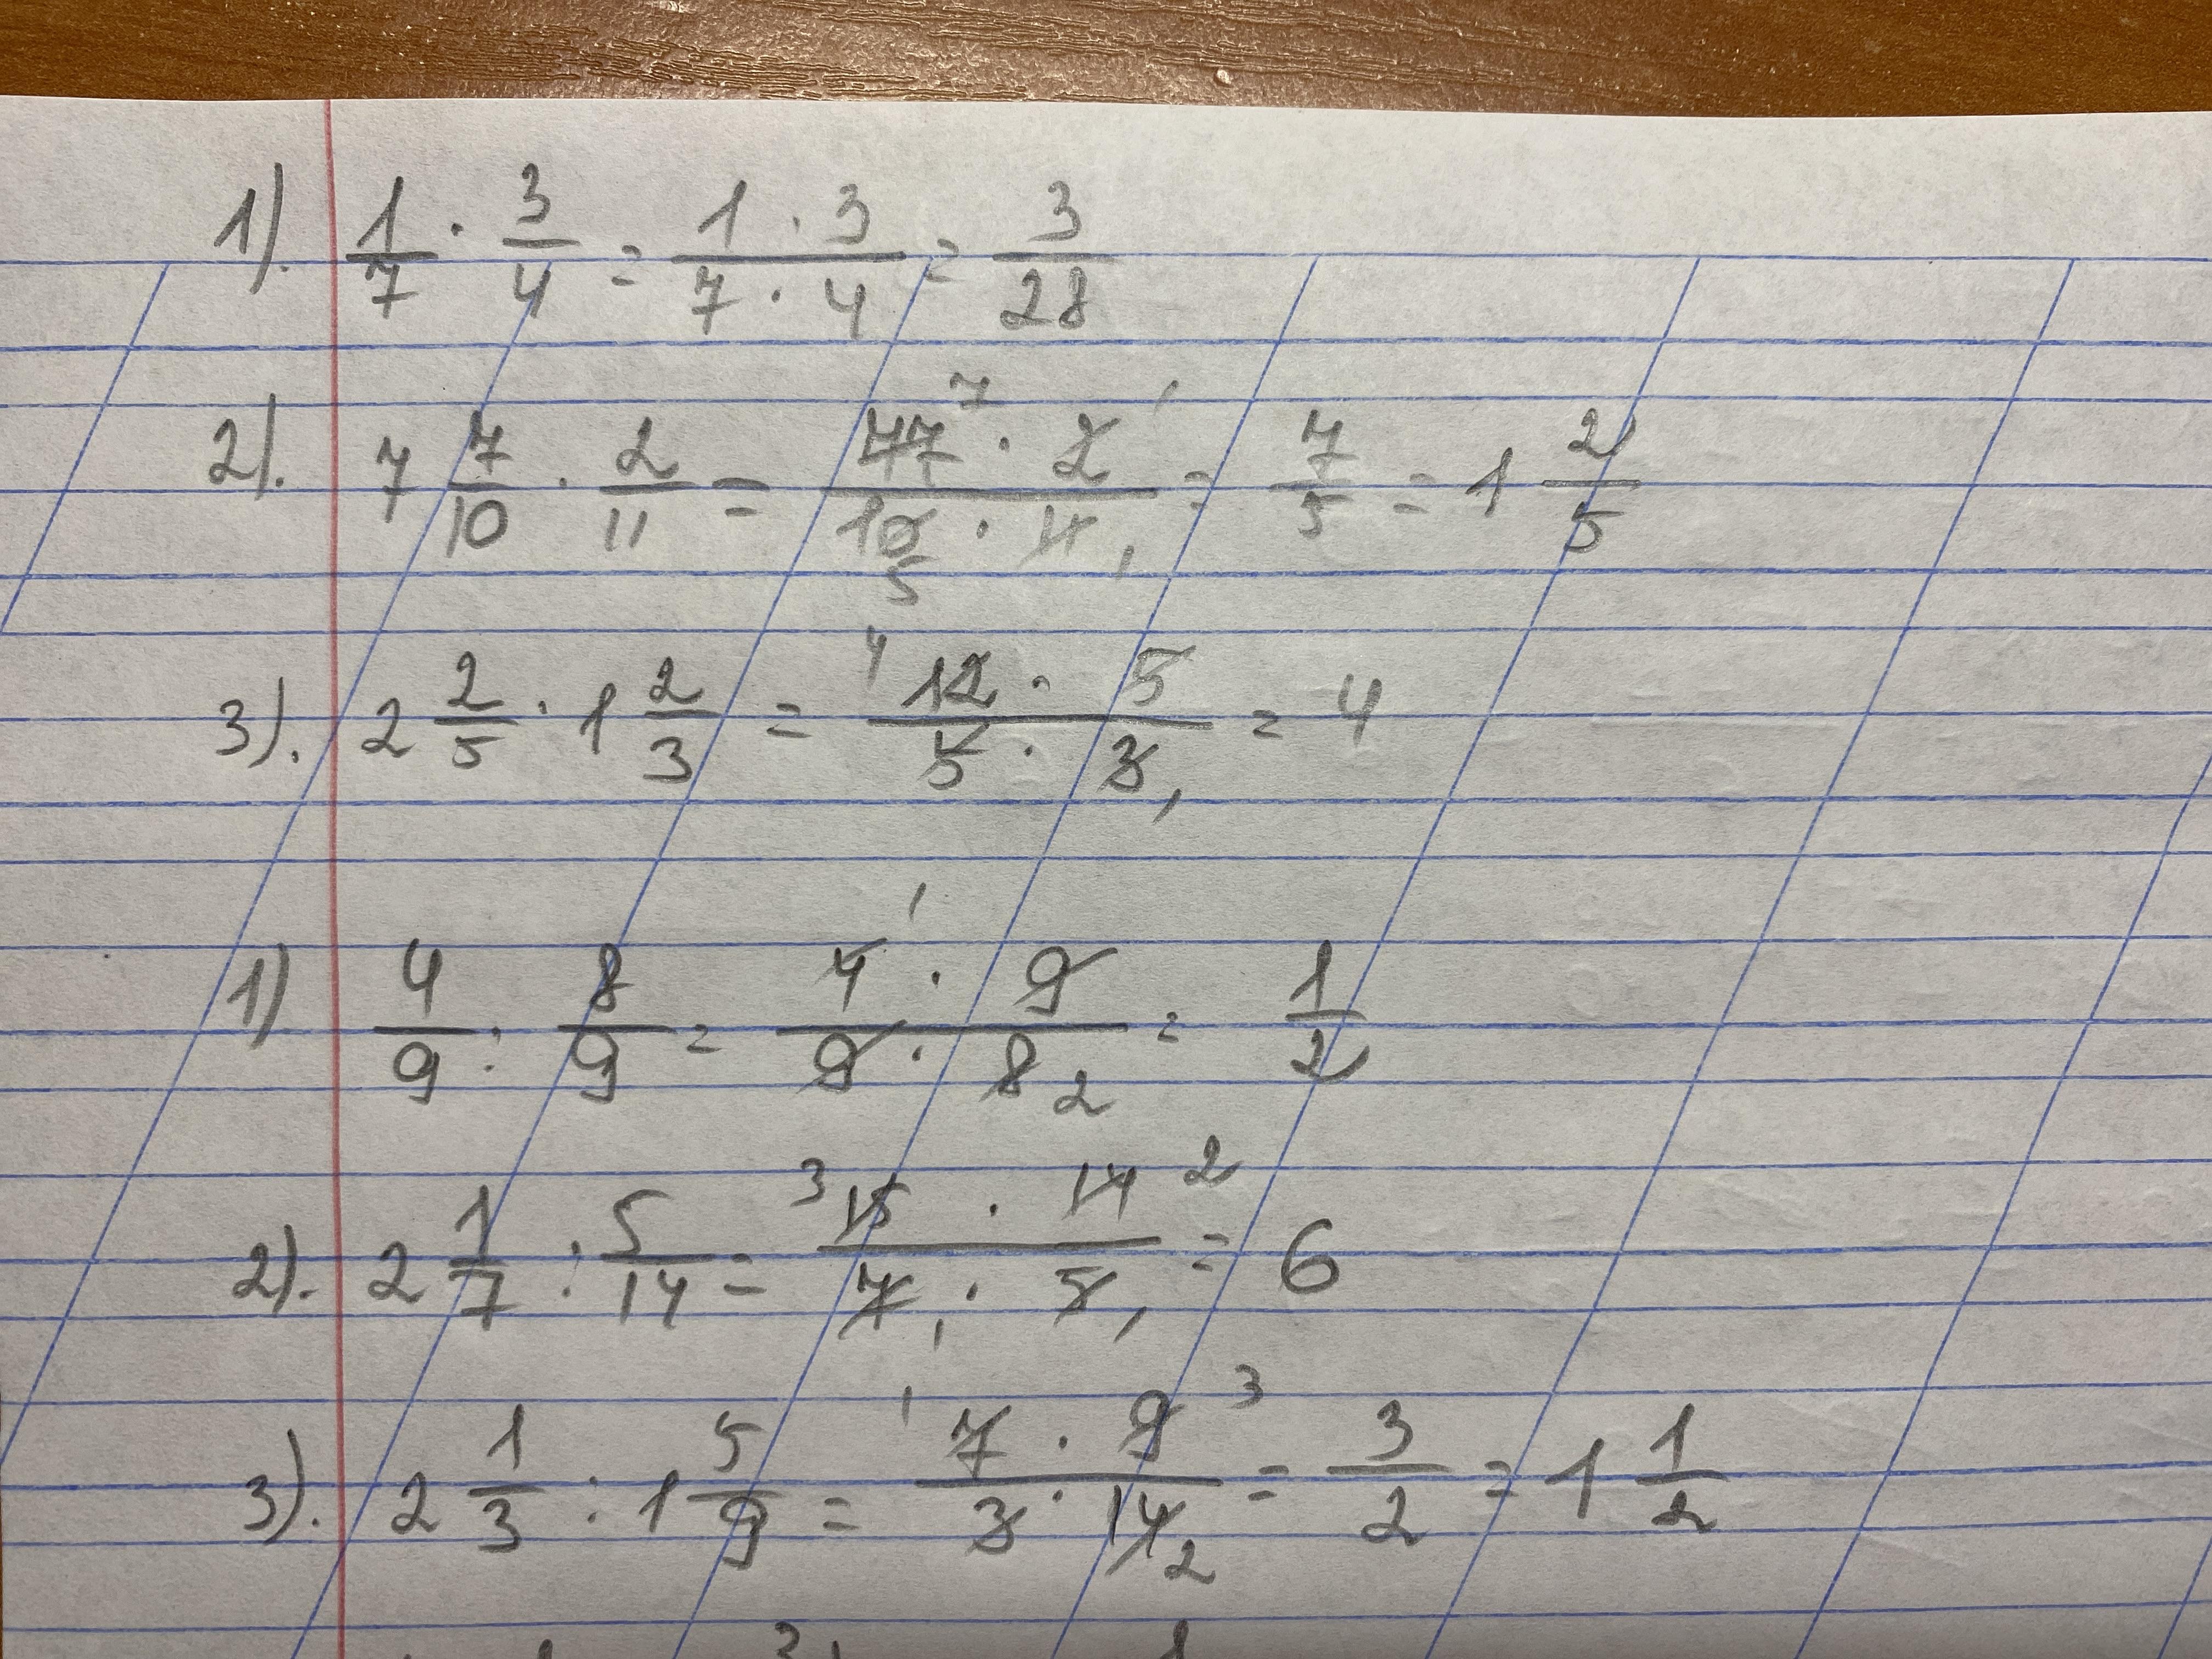 1). 1/7 · 3/4 = 1 · 3 / 7 · 4 = 3/28
2). 7 7/10 · 2/11 = 77 7 · 2 1 / 10 5 · 11 1 = 7/5 = 1 2/5
3). 2 2/5 · 1 2/3 = 4 12 · 5 / 5 · 3 1 = 4
1) 4/9 : 8/9 = 4 1 · 9 / 9 · 8 2 = 1/2
2). 2 1/7 : 5/14 = 3 15 · 14 2 / 7 1 · 5 1 = 6
3). 2 1/3 : 1 5/9 = 1 7 · 9 3 / 3 · 14 2 = 3/2 = 1 1/2